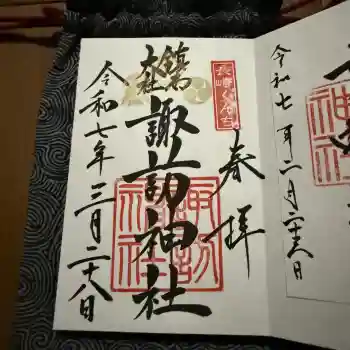 奉拝
長崎くんち
鎮西大社
諏訪神社
諏訪神社
令和七年三月二十八日
令和七年二月二十六日